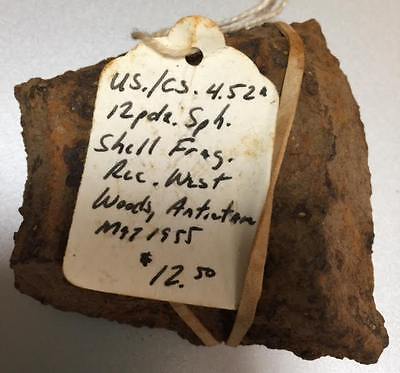 US./CS. 4.52"
12pdr. Sph.
Shell Frag.
Rec. West
Woods, Antietam
May 1955
$12.50